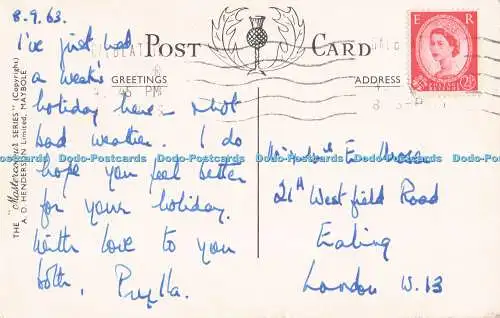 8.9.63.
POST CARD
GREETINGS
ADDRESS
E R
POSTAGE
REVENUE
2½D
I've just had
a week's
holiday here – not
bad weather. I do
hope you feel better
for your holiday.
With love to you
both,
E.
21A Westfield Road
Ealing
London W.13
THE "Mastercolour SERIES" (Copyright)
A. D. HENDERSON Limited, MAYBOLE
Dodo-Postcards Dodo-Postcards Dodo-Postcards Dodo-Postcards Dodo-Postcards Dodo-Postcards